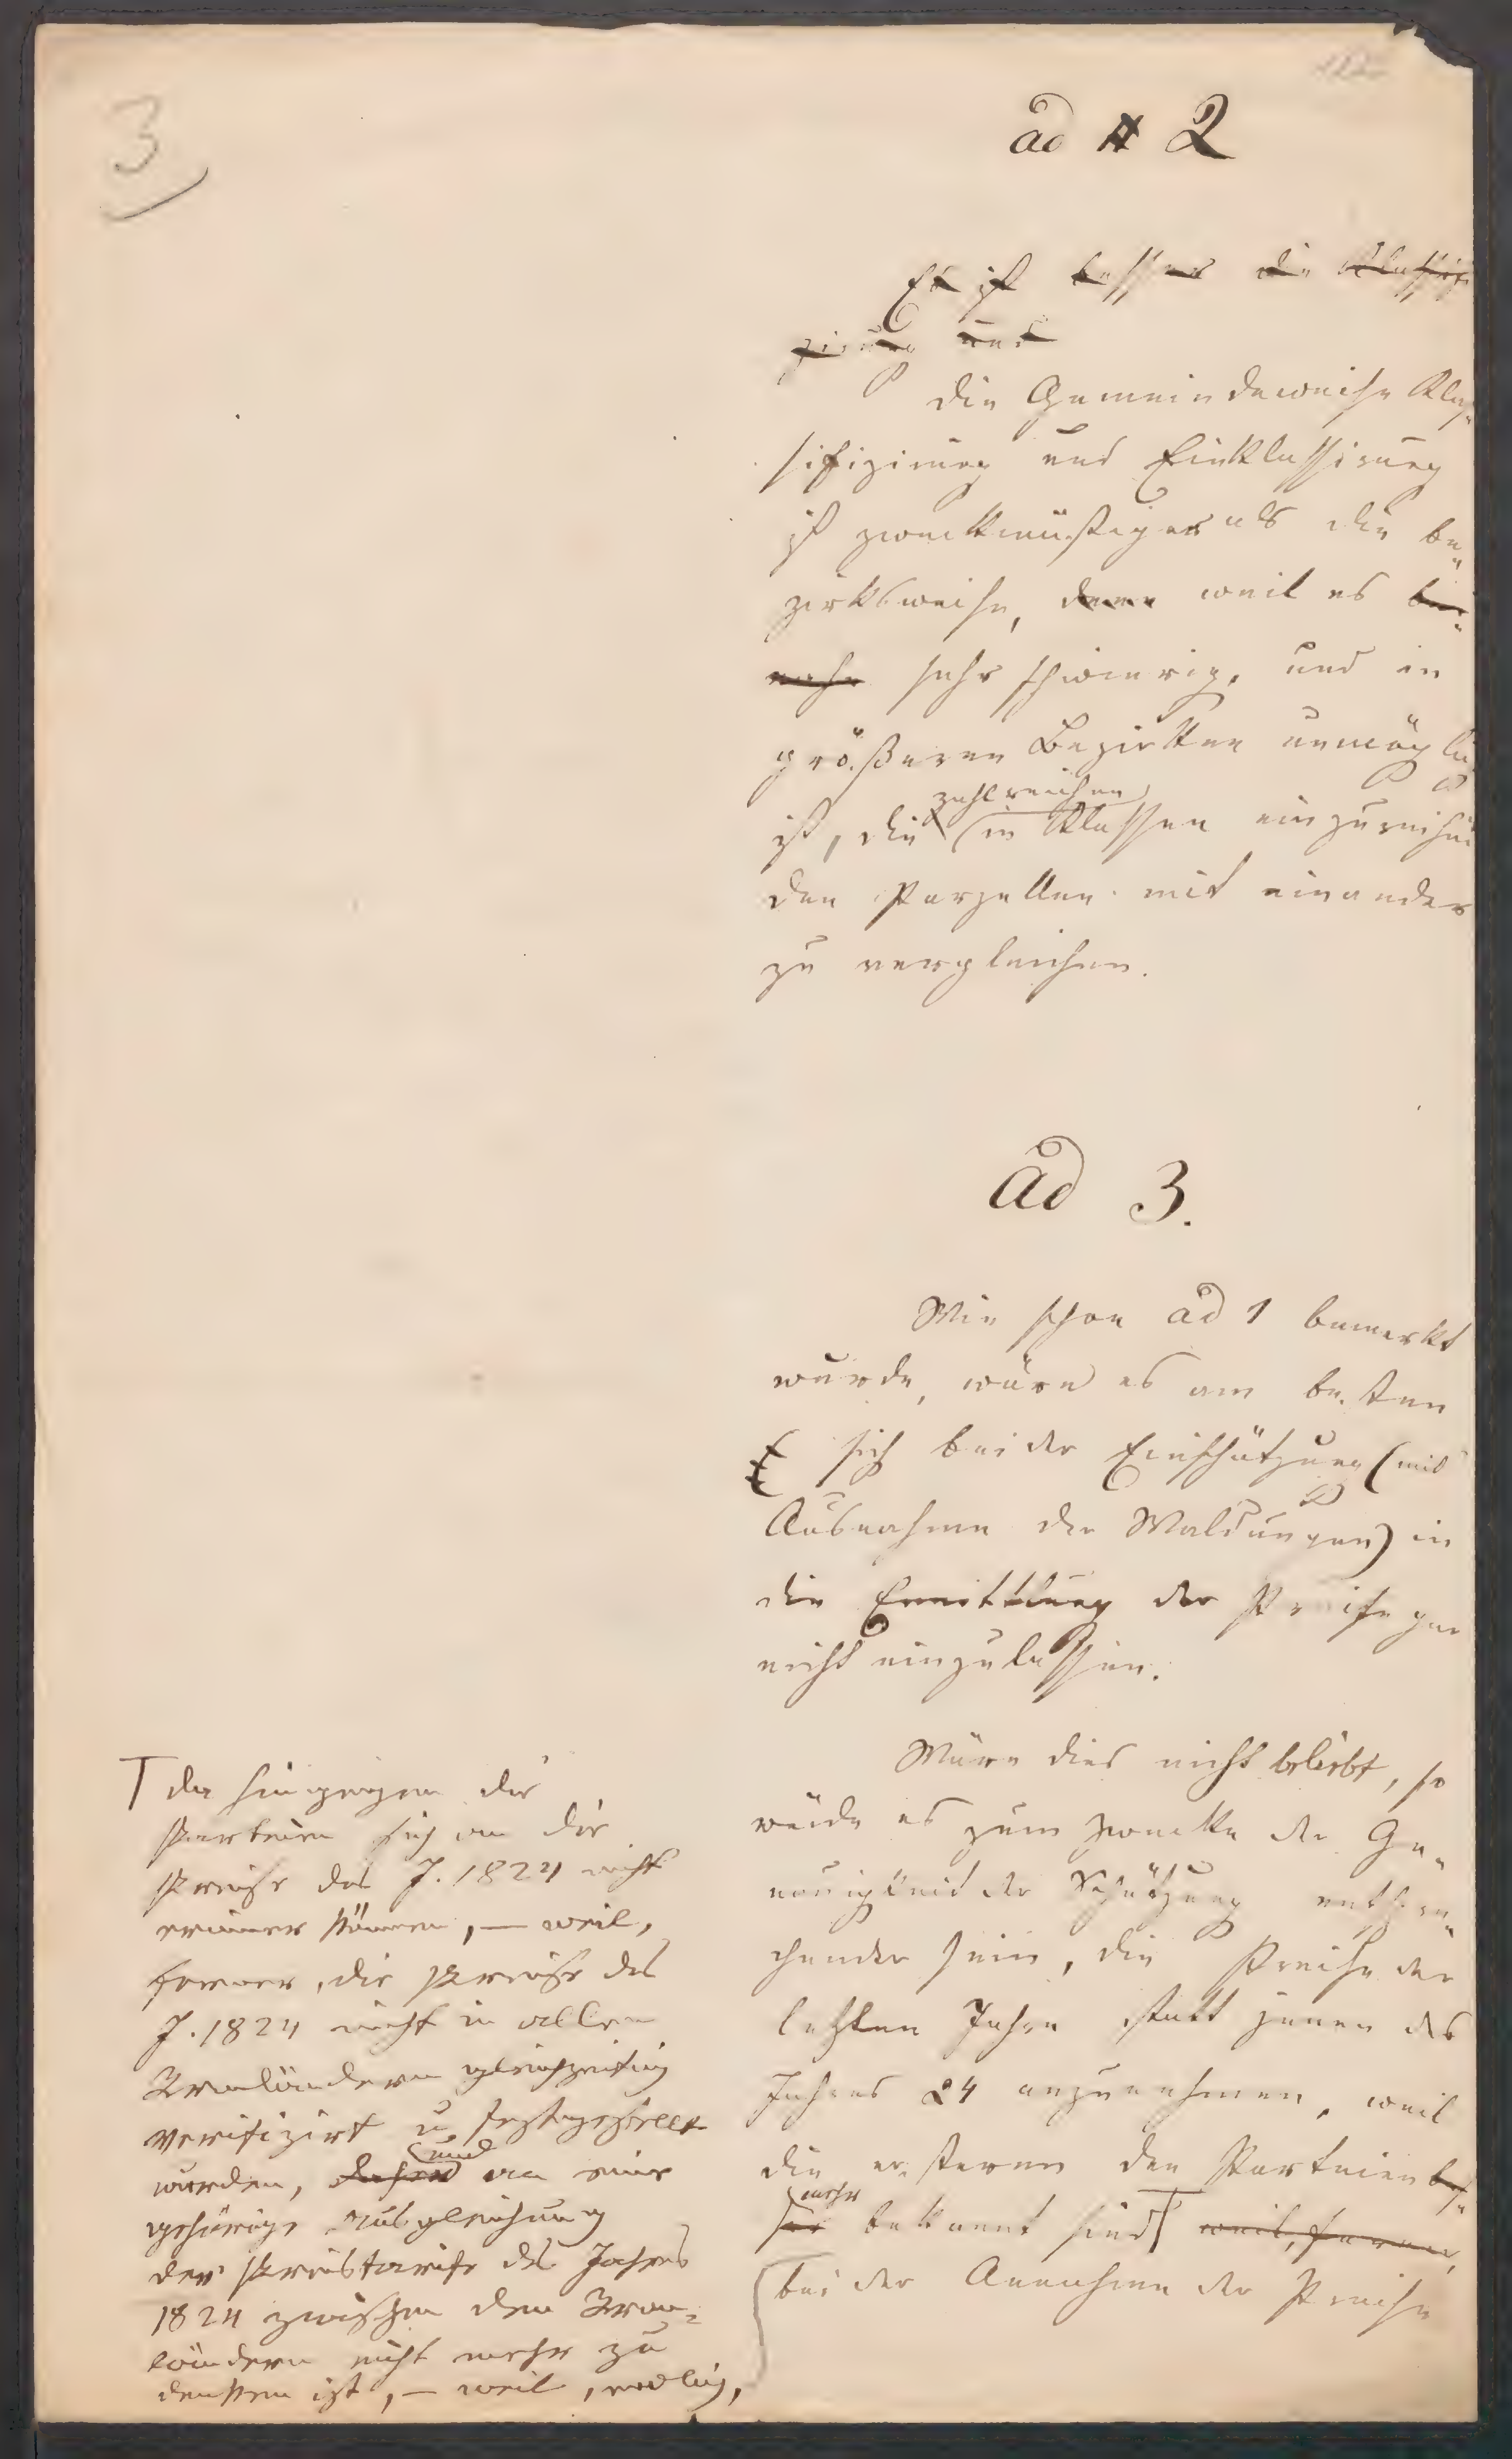 3
ad # 2
Es ist besser die Klassifi
zirung und
die Gemeindeweise Klas-
sifizirung und Einklassirung
ist zweckmäßiger als die be-
zirksweise, denn weil es bei-
nahe sehr schwierig, und in
größeren Bezirken unmöglich
zahlreichen
ist, die in Klassen einzureihen
den Parzellen mit einander
zu vergleichen.
ad 3.
Wie schon ad 1 bemerkt
wurde, wäre es am besten
sich bei der Einschätzung (mit
Ausnahme der Waldungen) in
die Ermittlung der Preise gar
nicht einzulassen.
Wäre dies nicht beliebt, so
würde es zum Zwecke der Ge-
nauigkeit der Schätzung entspre-
chender sein, die Preise der
letzten Jahre statt jenen des
Jahres 24 anzunehmen, weil
die ersteren den Parteien bes-
mehr
ser bekannt sind weil, ferner,
bei der Annahme der Preise
T da hingegen die
Parteien sich an die
Preise des J. 1824 nicht
erinnern können, — weil,
ferner, die Preise des
J. 1824 nicht in allen
Kronländern gleichzeitig
verifizirt u. festgestellt
und
wurden, an eine
gehörige Ausgleichung
der Preistarife des Jahres
1824 zwischen den Kron-
ländern nicht mehr zu
denken ist, — weil, endlich,